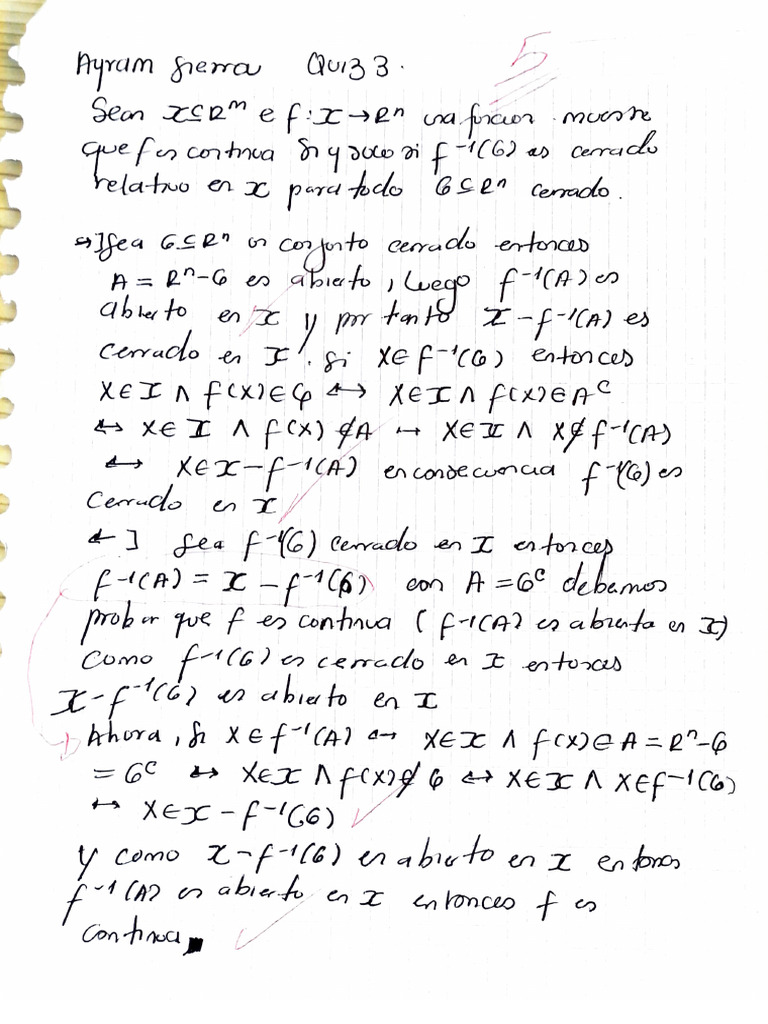 Ayram Sierra Quiz 3.
5
Sean X⊆Rᵐ e f:X→Rⁿ una funcion. muestre
que f es continua si y solo si f⁻¹(G) es cerrado
relativo en X para todo G⊆Rⁿ cerrado.
⇒] Sea G⊆Rⁿ un conjunto cerrado entonces
A = Rⁿ-G es abierto, luego f⁻¹(A) es
abierto en X y por tanto X - f⁻¹(A) es
cerrado en X. si x∈f⁻¹(G) entonces
x∈X ∧ f(x)∈G ↔ x∈X ∧ f(x)∈Aᶜ
↔ x∈X ∧ f(x)∉A ↔ x∈X ∧ x∉f⁻¹(A)
↔ x∈X-f⁻¹(A) en consecuencia f⁻¹(G) es
cerrado en X
⇐] Sea f⁻¹(G) cerrado en X entonces
f⁻¹(A) = X - f⁻¹(G) con A = Gᶜ debemos
probar que f es continua (f⁻¹(A) es abierta en X)
Como f⁻¹(G) es cerrado en X entonces
X-f⁻¹(G) es abierto en X
Ahora, si x∈f⁻¹(A) ↔ x∈X ∧ f(x)∈A = Rⁿ-G
= Gᶜ ↔ x∈X ∧ f(x)∉G ↔ x∈X ∧ x∈f⁻¹(G)
↔ x∈X-f⁻¹(G)
y como X-f⁻¹(G) es abierto en X entonces
f⁻¹(A) es abierto en X entonces f es
continua